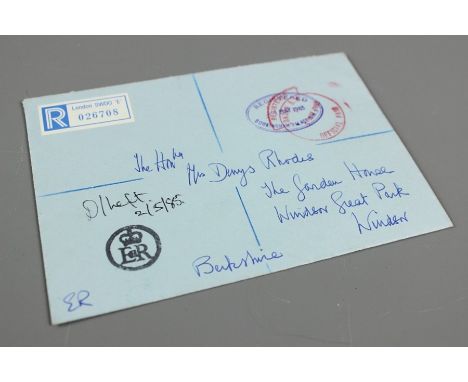 London SWDO 'E'
R 026708
REGISTERED
The Honble
Mrs Denys Rhodes
The Garden House
Windsor Great Park
Windsor
Berkshire
2/5/85
E R
ER